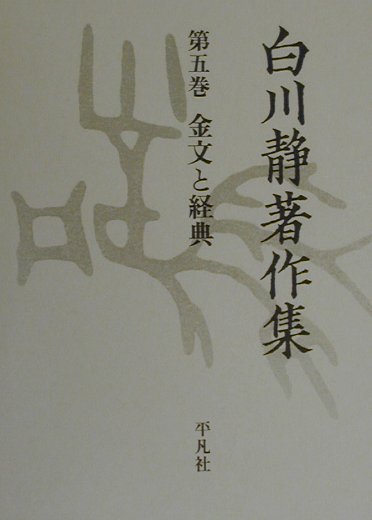 白川静著作集
第五巻 金文と経典
平凡社